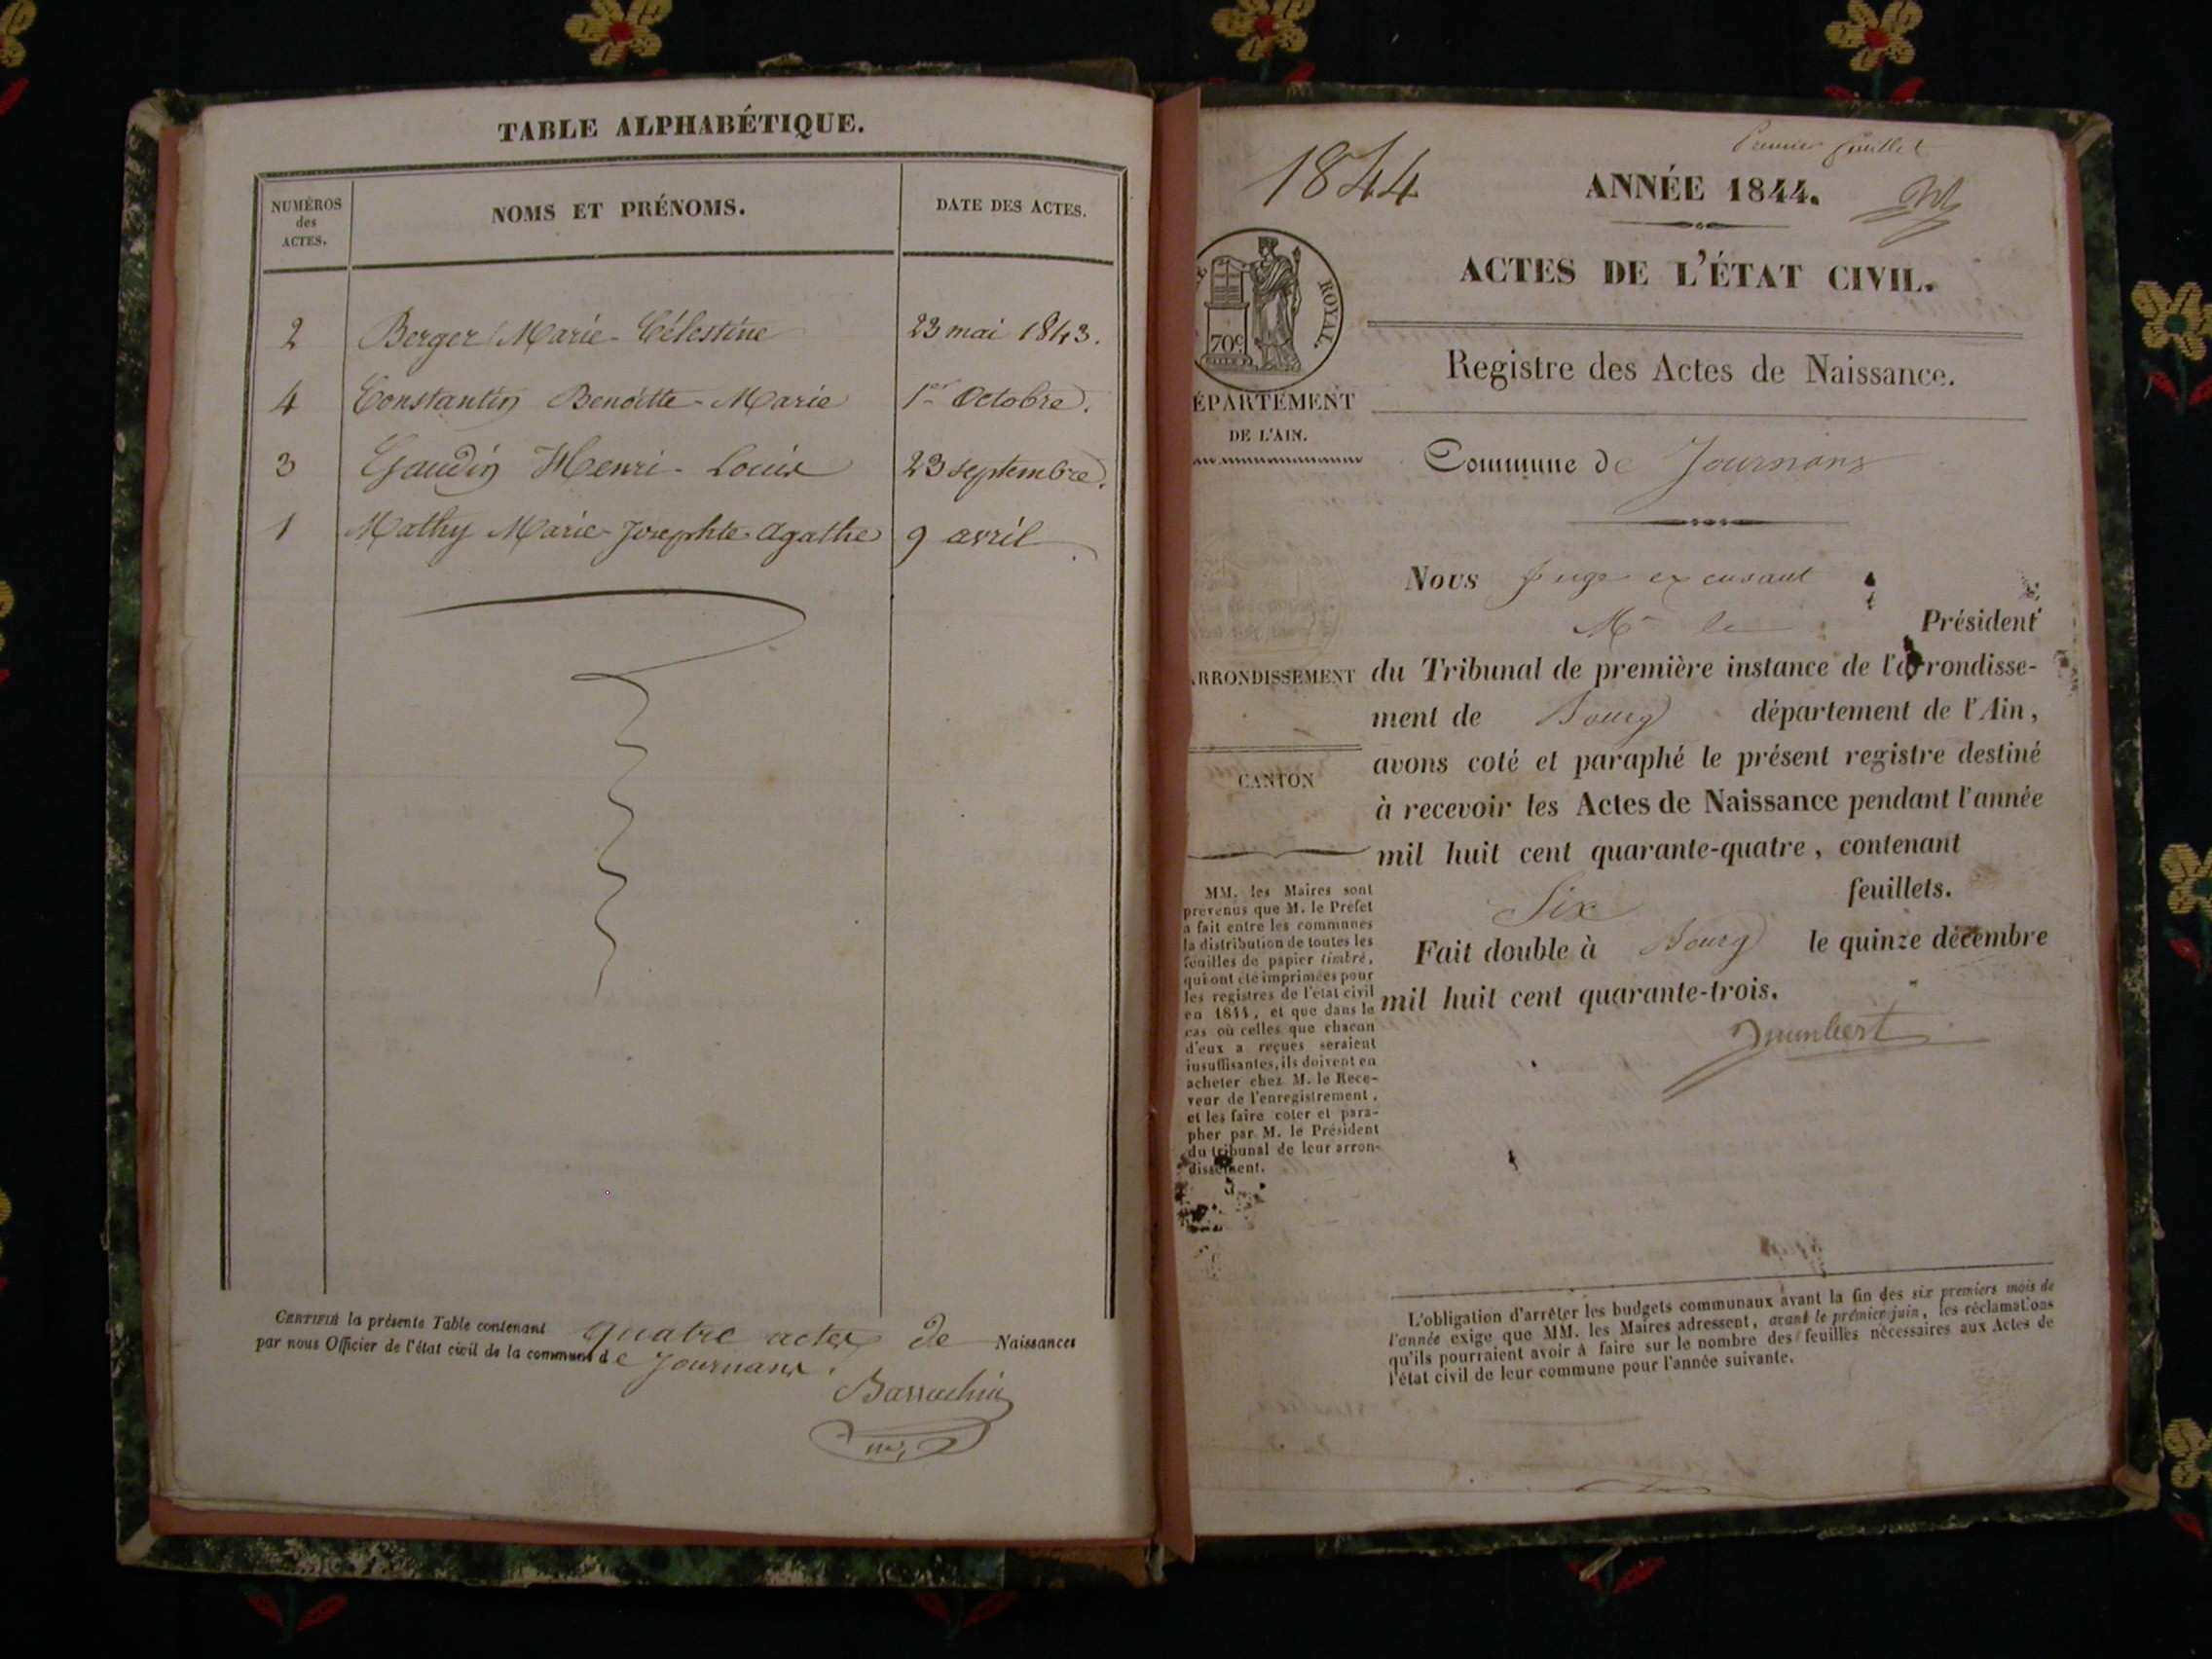 TABLE ALPHABÉTIQUE.
NUMÉROS
des
ACTES.
NOMS ET PRÉNOMS.
DATE DES ACTES.
2 Berger Marie-Célestine 23 mai 1843.
4 Constantin Benoitte-Marie 1er Octobre.
3 Gaudin Henri-Louis 23 septembre.
1 Mathy Marie-Josephte-Agathe 9 avril
CERTIFIÉ la présente Table contenant quatre actes de Naissances
par nous Officier de l'état civil de la commune de Journans.
Premier feuillet
1844
ANNÉE 1844.
ACTES DE L'ÉTAT CIVIL.
ROYAL.
70c
Registre des Actes de Naissance.
ÉPARTEMENT
DE L'AIN.
Commune de Journans
Nous Juge excusant
Mr le Président
ARRONDISSEMENT
du Tribunal de première instance de l'arrondisse-
ment de Bourg département de l'Ain,
avons coté et paraphé le présent registre destiné
CANTON
à recevoir les Actes de Naissance pendant l'année
mil huit cent quarante-quatre, contenant
Six feuillets.
Fait double à Bourg le quinze décembre
mil huit cent quarante-trois.
MM. les Maires sont
prévenus que M. le Préfet
a fait entre les communes
la distribution de toutes les
feuilles de papier timbré,
qui ont été imprimées pour
les registres de l'état civil
en 1844, et que dans le
cas où celles que chacun
d'eux a reçues seraient
insuffisantes, ils doivent en
acheter chez M. le Rece-
veur de l'enregistrement,
et les faire coter et para-
pher par M. le Président
du tribunal de leur arron-
dissement.
L'obligation d'arrêter les budgets communaux avant la fin des six premiers mois de
l'année exige que MM. les Maires adressent, avant le premier juin, les réclamations
qu'ils pourraient avoir à faire sur le nombre des feuilles nécessaires aux Actes de
l'état civil de leur commune pour l'année suivante.